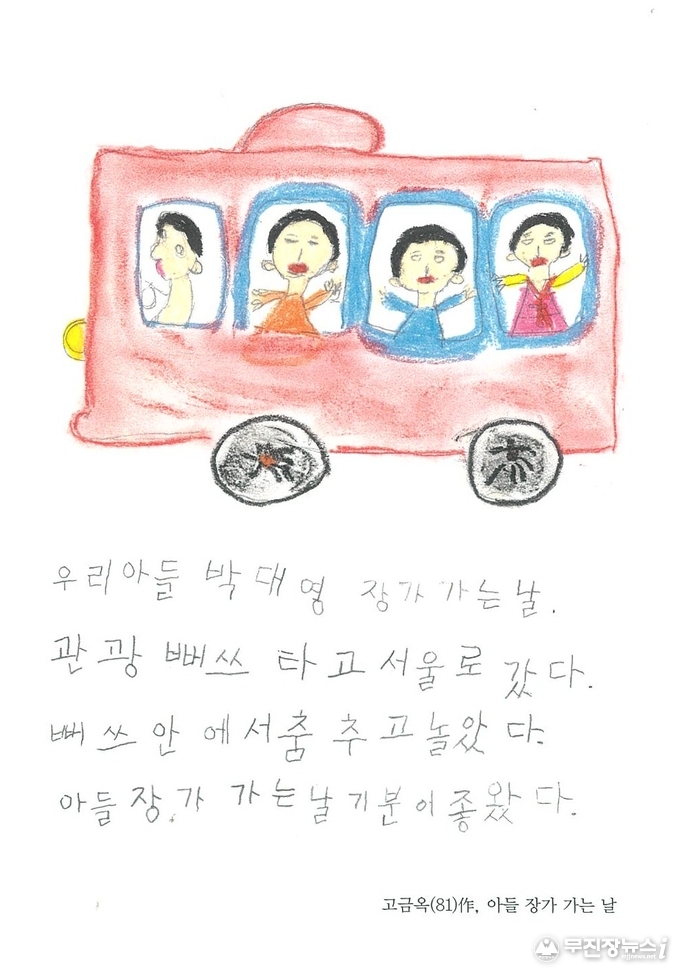 우리아들 박대영 장가 가는날.
관광 뻐쓰 타고 서울로 갔다.
뻐쓰 안에서 춤추고 놀았다.
아들 장가 가는날 기분이 좋왔다.
고금옥(81)作, 아들 장가 가는 날
무진장뉴스i
mjjnews.net